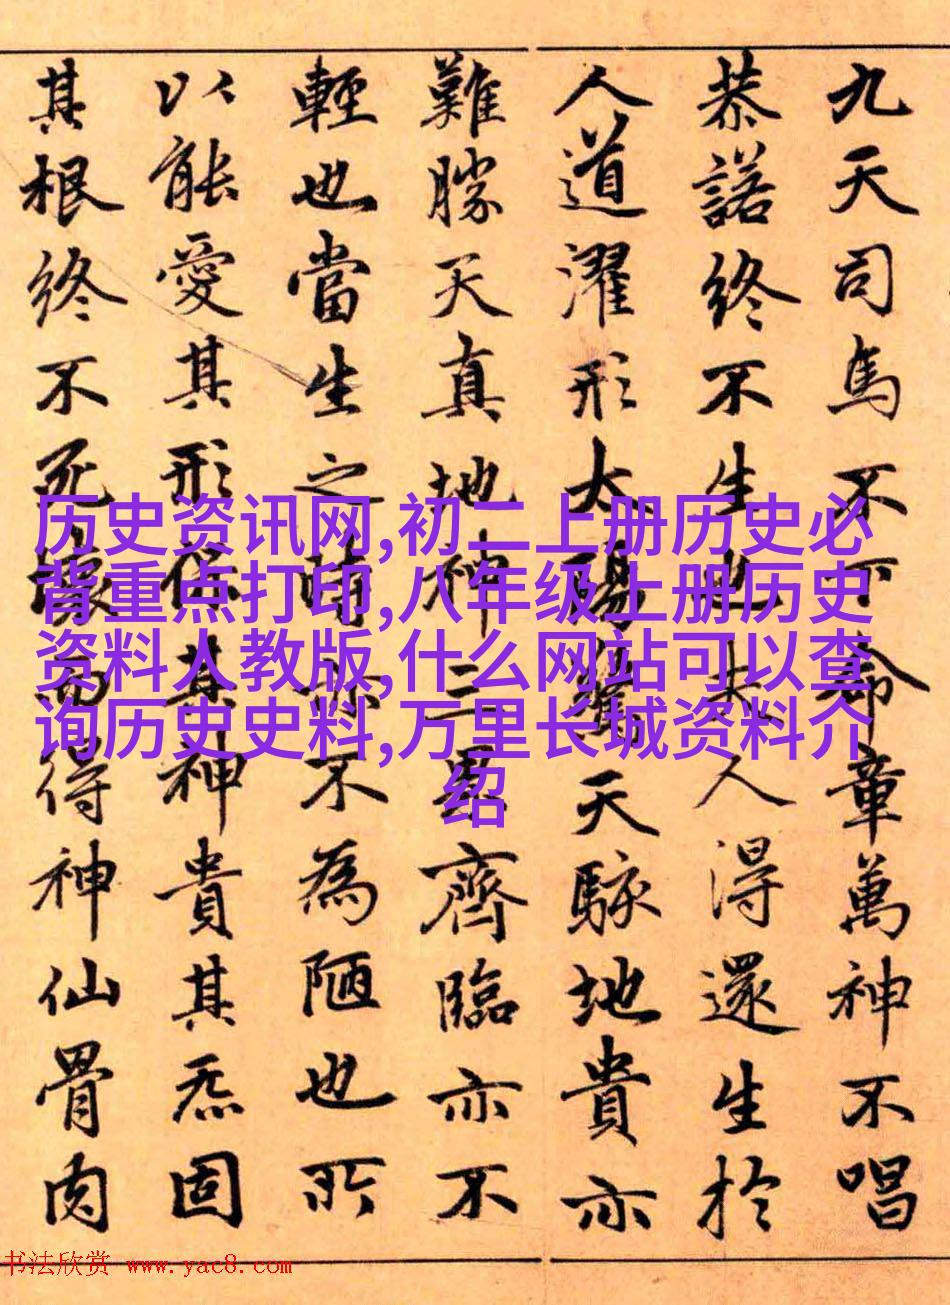 九天司馬不下命章萬神不唱
恭諾終不生也夫人得還生於
人道濯形太陽驚天駭地貴亦
難勝天真地神三界齊臨亦不
輕也當生之時亦不為陋也所
以能愛其形保其神貴其炁固
其根終不死壞而得神仙骨肉
历史资讯网,初二上册历史必
背重点打印,八年级上册历史
资料人教版,什么网站可以查
询历史史料,万里长城资料介
绍
书法欣赏 www.yac8.com